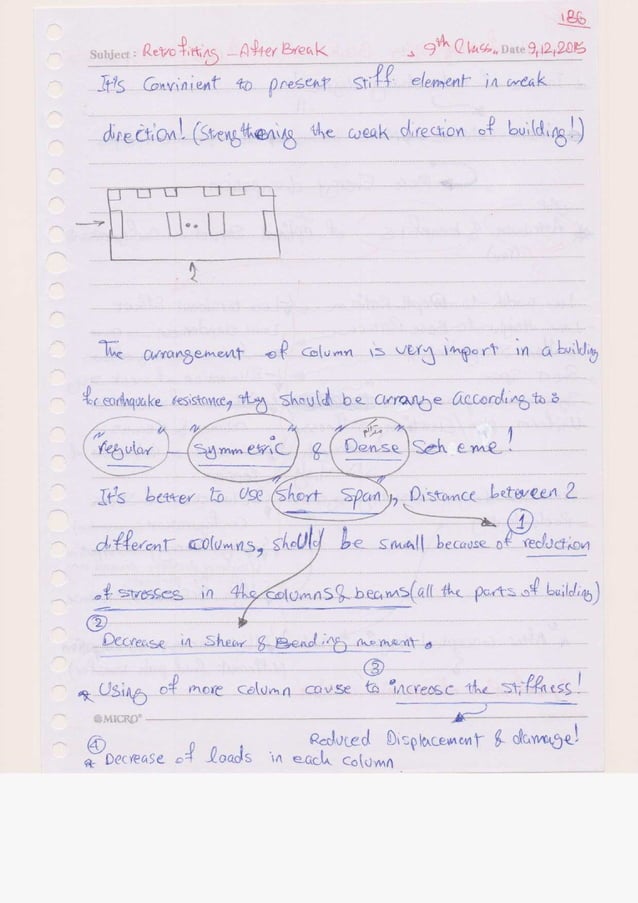 186
Subject: Retrofitting - After Break , 9th Class.. Date 9,12,2015
It's Convinient to present stiff element in weak
direction! (Strengthening the weak direction of building!)
The arrangement of column is very import in a building
for earthquake resistance, they should be arrange according to :
"regular" - "Symmetric" & "Dense" متراکم Scheme!
It's better to use Short Span, Distance between 2
①
different columns, should be small because of reduction
of stresses in the columns & beams (all the parts of building)
②
Decrease in Shear & Bending moment.
③
* Using of more column cause to increase the stiffness!
@MICRO
Reduced Displacement & damage!
④
* Decrease of loads in each column